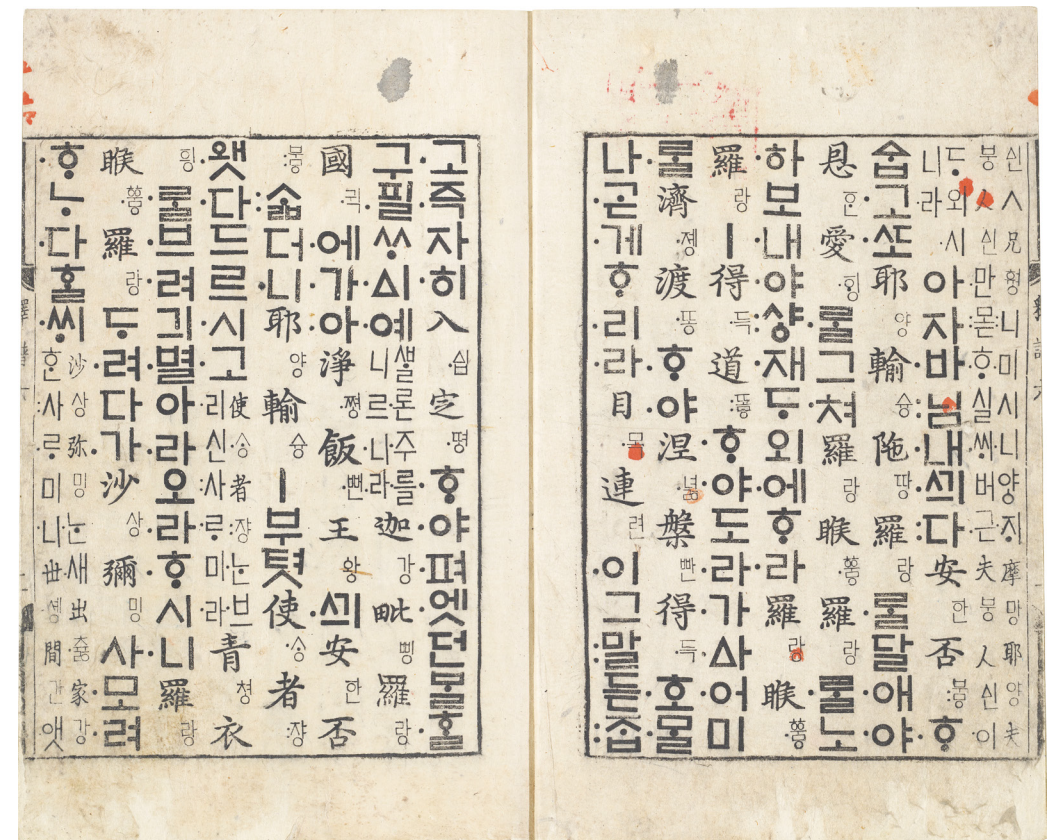 ᅀᅵᆫㅅ兄형니미시니양ᄌᆡ摩망耶양夫
붕人ᅀᅵᆫ만몯ᄒᆞ실ᄊᆡ버근夫붕人ᅀᅵᆫ이
ᄃᆞ외시
니라
아자바님내ᄭᅴ다安한否:부ᇢᄒᆞ
ᅀᆞᆸ고ᄯᅩ耶양輸슝陁땅羅랑ᄅᆞᆯ달애야
恩ᅙᅳᆫ愛ᅙᆡᆼᄅᆞᆯ그쳐羅랑睺ᅘᅮᇢ羅랑ᄅᆞᆯ노
하보내야샹재ᄃᆞ외에ᄒᆞ라羅랑睺ᅘᅮᇢ
羅랑ㅣ得득道ᄯᅩᇢᄒᆞ야도라가ᅀᅡ어미
ᄅᆞᆯ濟졩渡똥ᄒᆞ야涅녏槃빤得득호ᄆᆞᆯ
나ᄀᆞᆮ게ᄒᆞ리라目목連련이그말듣ᄌᆞᆸ
고즉자히入ᅀᅵᆸ定뗭ᄒᆞ야펴엣던ᄇᆞᆯᄒᆞᆯ
구필ᄊᆞᅀᅵ예
ᄲᆞᄅᆞᆫ주를
니르니라
迦강毗삥羅랑
國귁에가아淨쪙飯뻔王왕ᄭᅴ安한否
부ᇢᄉᆞᆲ더니耶양輸슝ㅣ부텻使ᄉᆞᆼ者쟝
왯다드르시고
使ᄉᆞᆼ者쟝ᄂᆞᆫ브
리신사ᄅᆞ미라
青쳥衣
ᅙᅴᆼᄅᆞᆯ브려긔별아라오라ᄒᆞ시니羅랑
睺ᅘᅮᇢ羅랑ᄃᆞ려다가沙상彌밍사모려
ᄒᆞᄂᆞ다ᄒᆞᆯᄊᆡ
沙상弥밍ᄂᆞᆫ새出츓家강
ᄒᆞᆫ사ᄅᆞ미니世솅間간앳